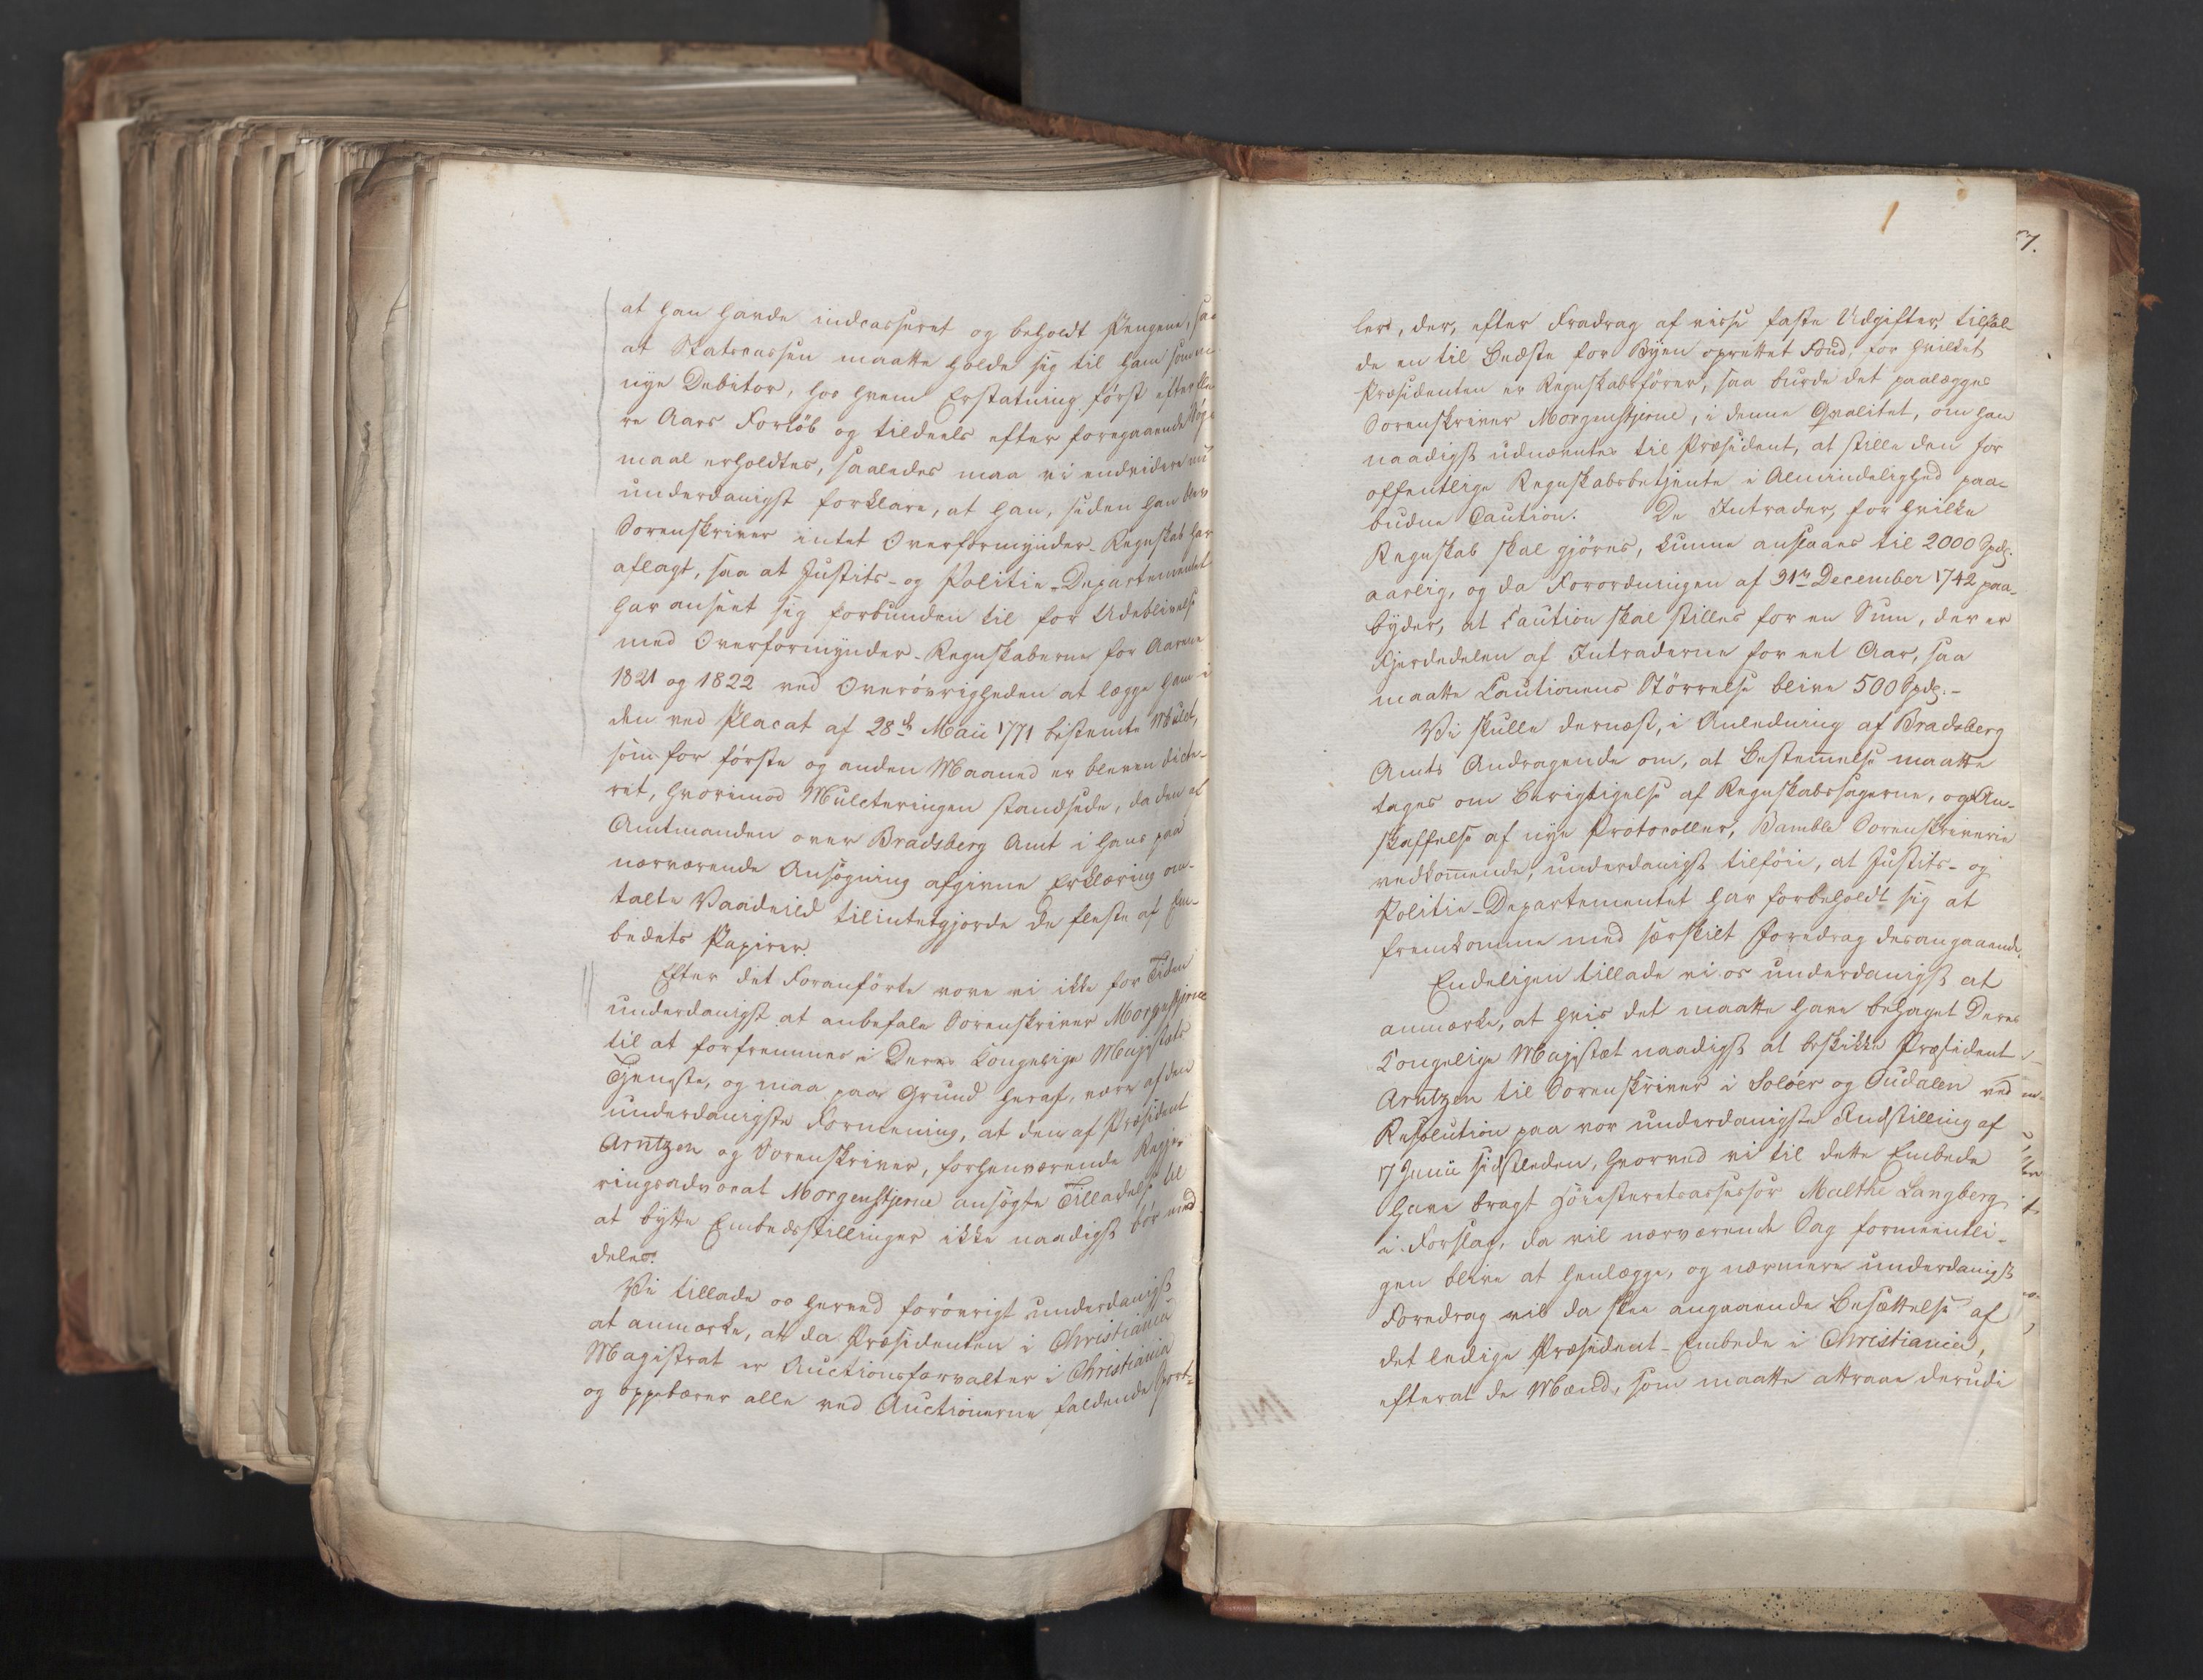 at han havde indcasseret og beholdt Pengene, saa
at Statscassen maatte holde sig til ham som sin
nye Debitor, hos hvem Erstatning først efter fle-
re Aars Forløb og tildeels efter foregaaende Søgs-
maal erholdtes, saaledes maa vi endvidere
underdanigst forklare, at han, siden han blev
Sorenskriver intet Overformynder-Regnskab har
aflagt, saa at Justits- og Politie-Departementet
har anseet sig forbunden til for Udeblivelse
med Overformynder-Regnskaberne for Aarene
1821 og 1822 ved Overøvrigheden at lægge ham i
den ved Placat af 28de Maii 1771 bestemte Mulct,
som for første og anden Maaned er bleven dicte-
ret, hvorimod Mulcteringen standsede, da den af
Amtmanden over Bradsberg Amt i hans paa
nærværende Ansøgning afgivne Erklæring om-
talte Vaadeild tilintetgjorde de fleste af Em-
bedets Papirer.
Efter det Foranførte vove vi ikke for Tiden
underdanigst at anbefale Sorenskriver Morgenstjerne
til at forfremmes i Deres Kongelige Majestæts
Tjeneste, og maa paa Grund heraf, være af den
underdanigste Formening, at den af Præsident
Arntzen og Sorenskriver, forhenværende Regje-
ringsadvocat Morgenstjerne ansøgte Tilladelse til
at bytte Embedsstillinger ikke naadigst bør med-
deles.
Vi tillade os herved forøvrigt underdanigst
at anmærke, at da Præsidenten i Christiania
Magistrat er Auctionsforvalter i Christiania
og oppebærer alle ved Auctionerne faldende Sport-
57.
ler, der, efter Fradrag af visse faste Udgifter, tilfal-
de en til Bedste for Byen oprettet Fond, for hvilket
Præsidenten er Regnskabsfører, saa burde det paalægges
Sorenskriver Morgenstjerne, i denne Qvalitet, om han
naadigst udnævntes til Præsident, at stille den for
offentlige Regnskabsbetjente i Almindelighed paa-
budne Caution. De Intrader, for hvilke
Regnskab skal gjøres, kunne ansaaes til 2000 Spdlr.
aarlig, og da Forordningen af 31te December 1742 paa-
byder, at Caution skal stilles for en Sum, der er
Fjerdedelen af Intraderne for eet Aar, saa
maatte Cautionens Størrelse blive 500 Spdlr.-
Vi skulle dernæst, i Anledning af Bradsberg
Amts Andragende om, at Bestemmelse maatte
tages om Berigtigelse af Regnskabssagerne, og An-
skaffelse af nye Protocoller, Bamble Sorenskriverie
vedkommende, underdanigst tilføie, at Justits- og
Politie-Departementet har forbeholdt sig at
fremkomme med særskilt Foredrag desangaaende.
Endeligen tillade vi os underdanigst at
anmærke, at hvis det maatte have behaget Deres
Kongelige Majestæt naadigst at beskikke Præsident
Arntzen til Sorenskriver i Soløer og Oudalen ved
Resolution paa vor underdanigste Indstilling af
17 Junii sidstleden, hvorved vi til dette Embede
have bragt Høiesteretsassessor Malthe Langberg
i Forslag, da vil nærværende Sag formeentli-
gen blive at henlægge, og nærmere underdanigst
Foredrag vil da skee angaaende Besættelse af
det ledige Præsident-Embede i Christiania,
efterat de Mænd, som maatte attraae derudi